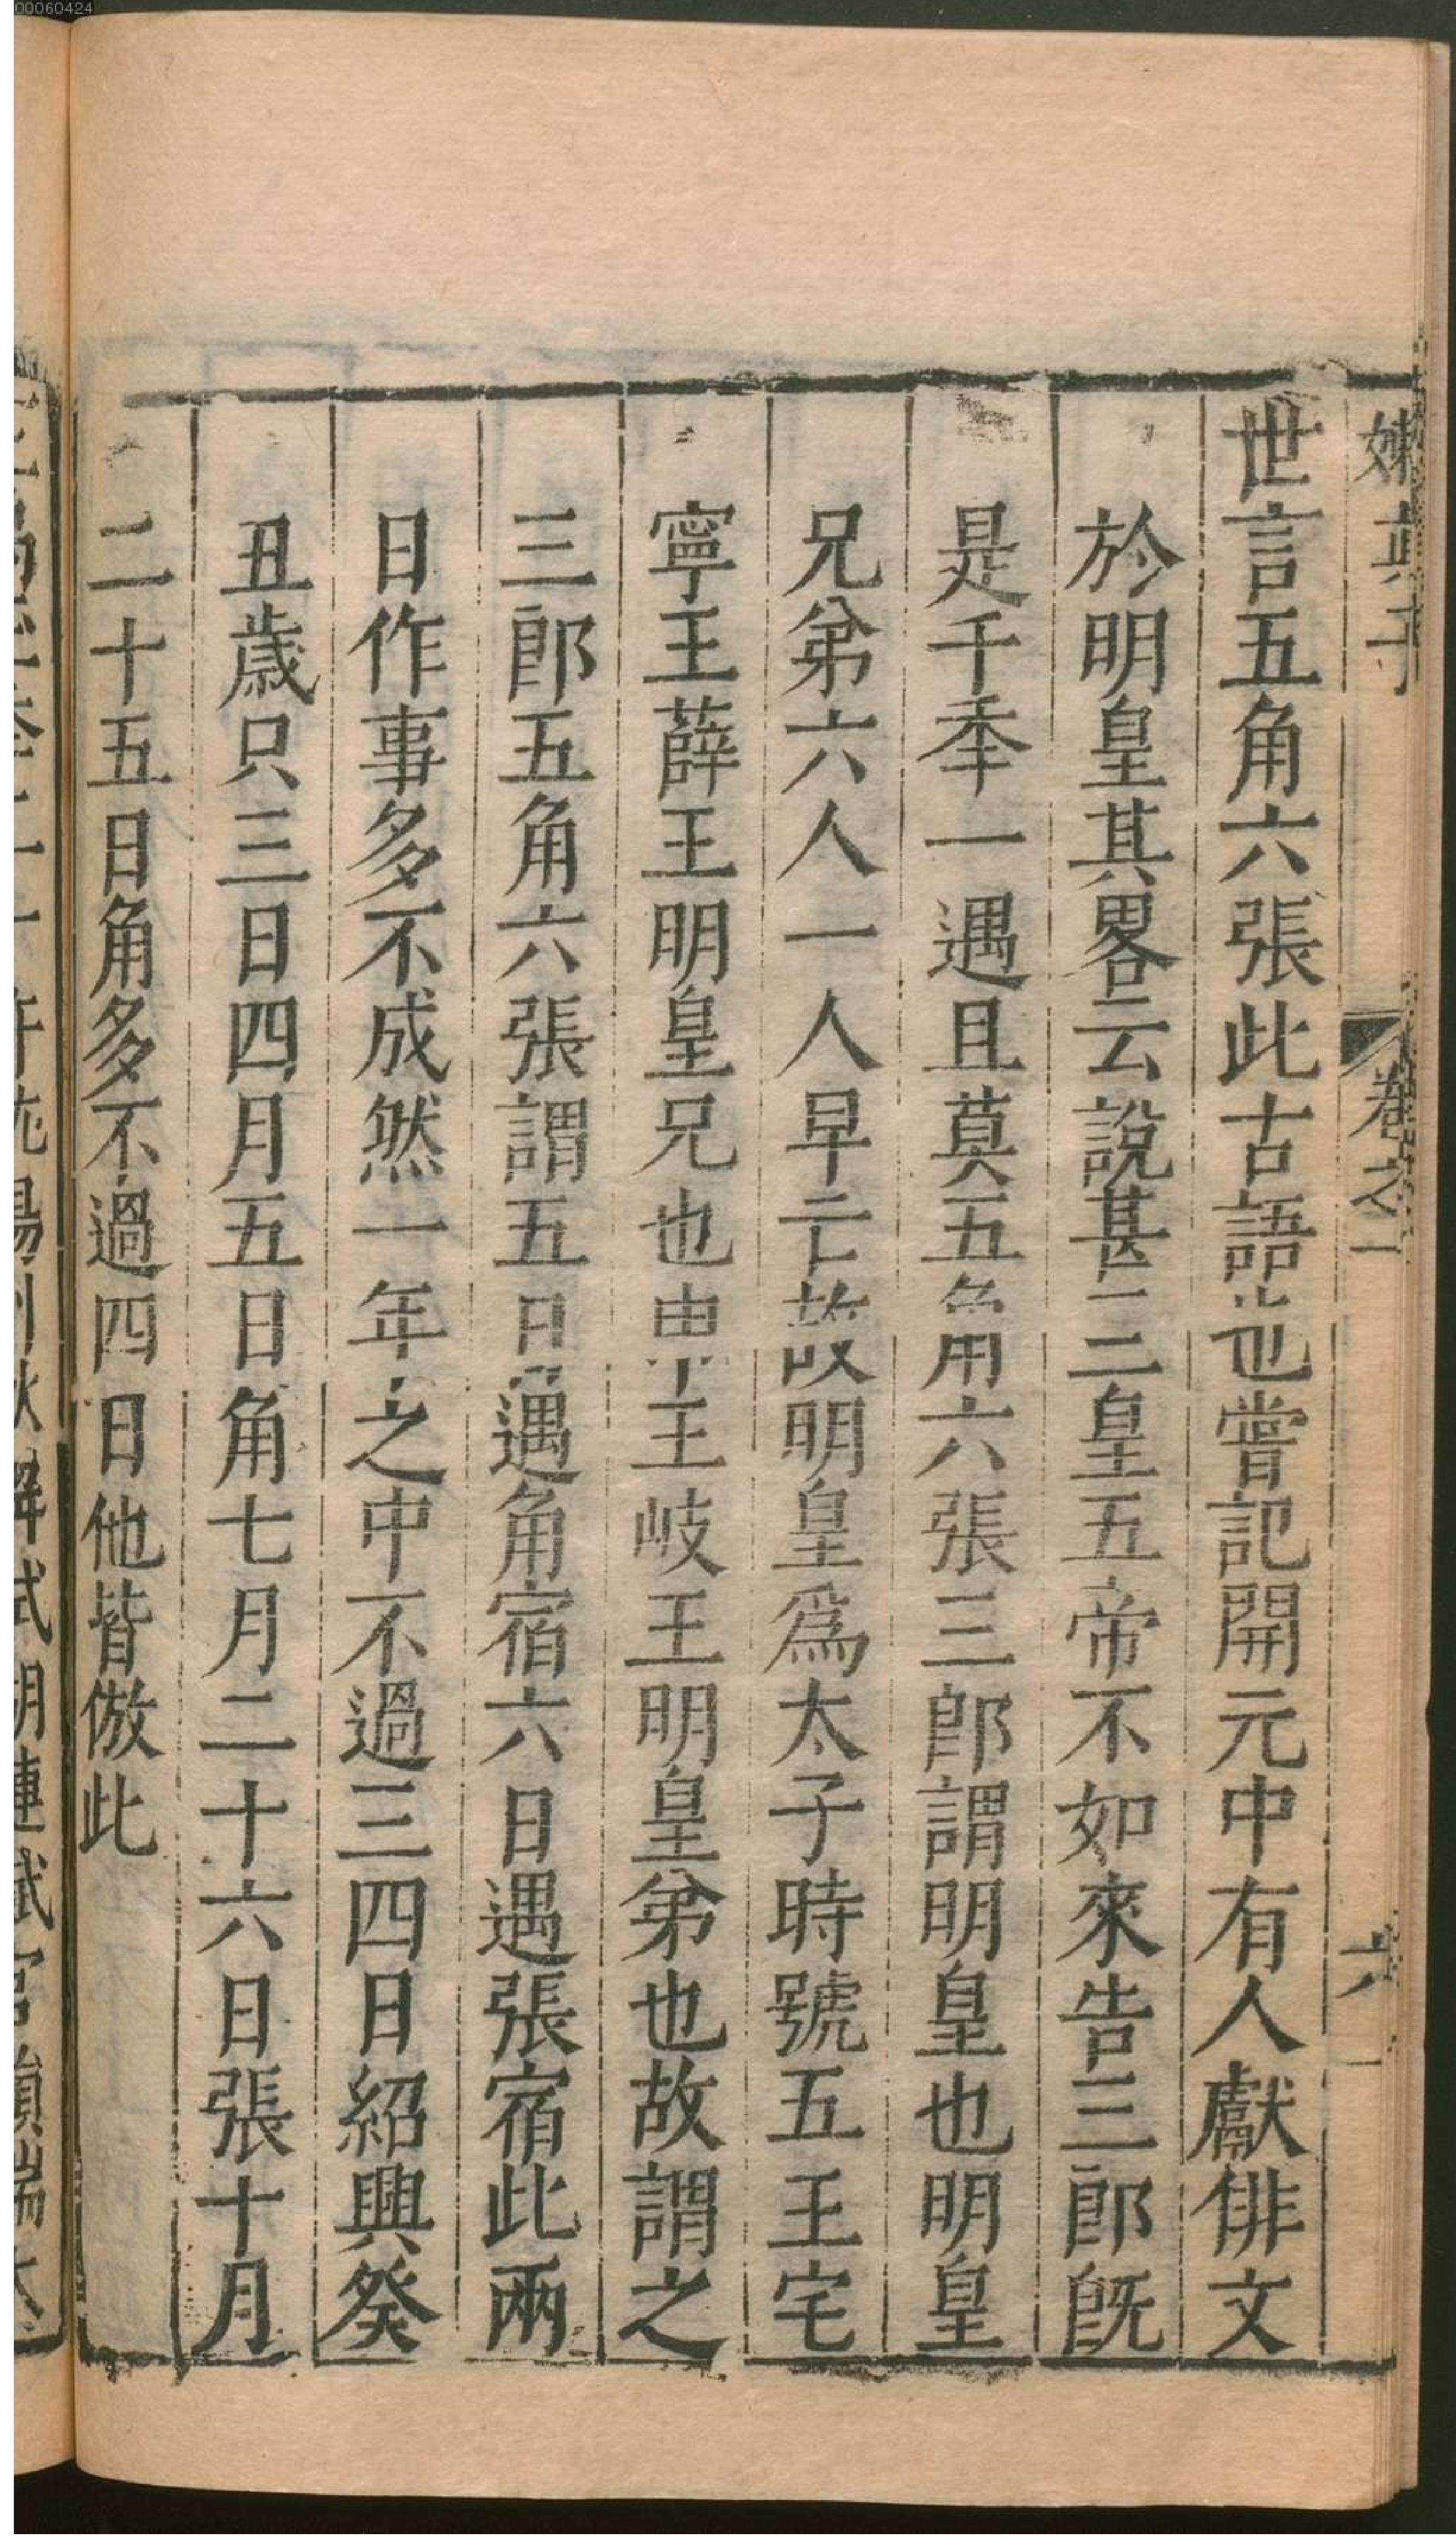 00060424
嬾真子
卷之一
六
世言五角六張此古語也嘗記開元中有人獻俳文
於明皇其畧云說甚三皇五帝不如來告三郎旣
是千秊一遇且莫五角六張三郎謂明皇也明皇
兄弟六人一人早亡故明皇爲太子時號五王宅
寧王薛王明皇兄也申王岐王明皇弟也故謂之
三郎五角六張謂五日遇角宿六日遇張宿此兩
日作事多不成然一年之中不過三四日紹興癸
丑歲只三日四月五日角七月二十六日張十月
二十五日角多不過四日他皆倣此